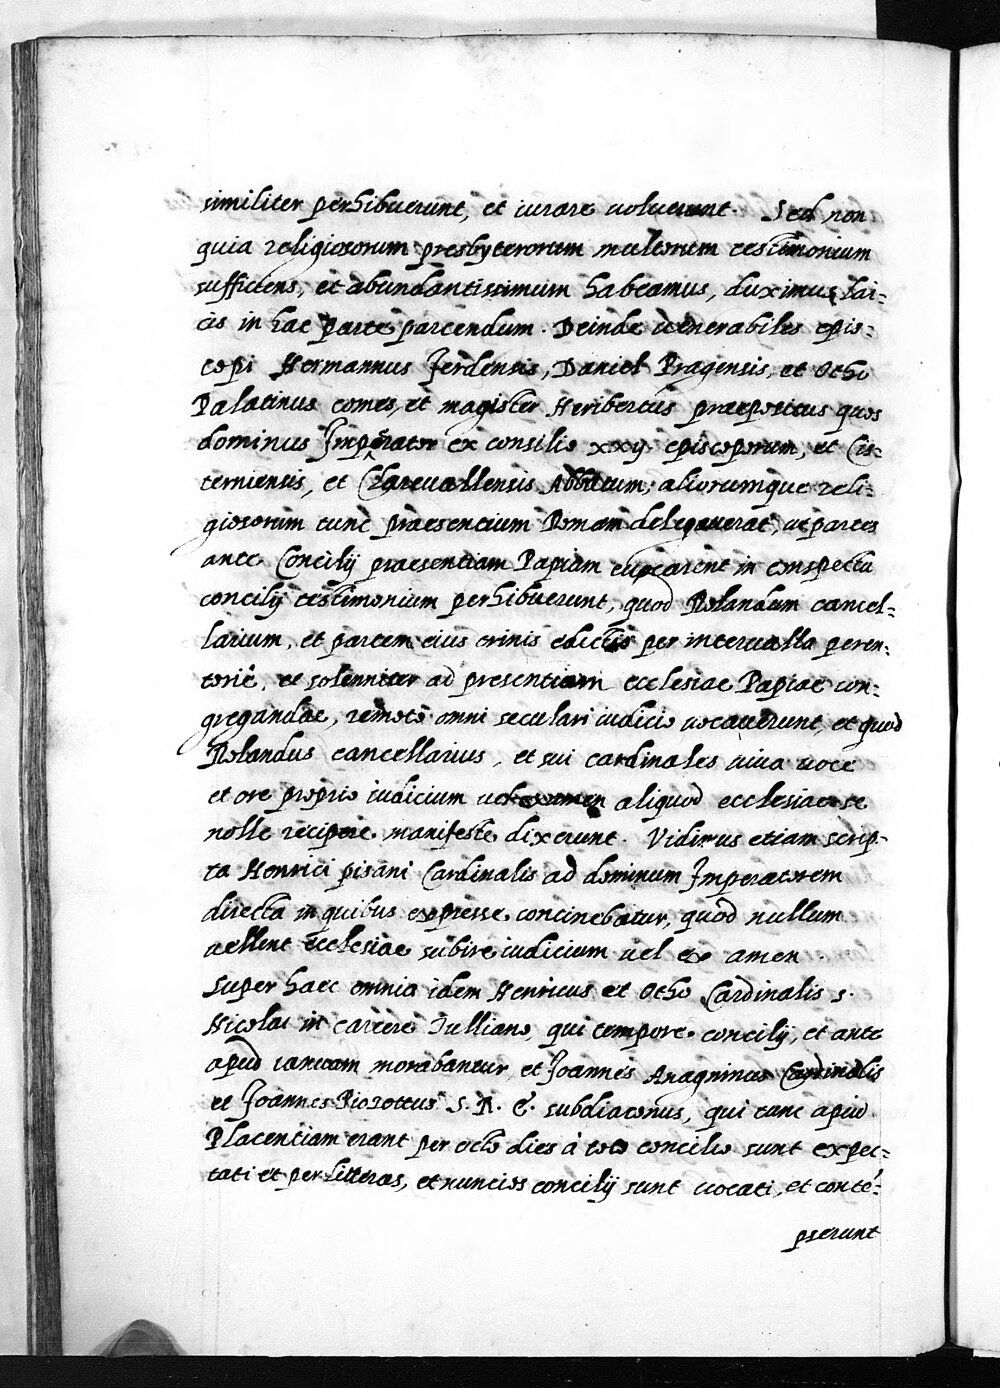 similiter perhibuerunt, et iurare uoluerunt. Sed non
quia religiosorum presbyterorum multorum testimonium
sufficiens, et abundantissimum habeamus, duximus Lai=
cis in hac parte parcendum. Deinde uenerabiles epis=
copi Hermannus Ferdensis, Daniel Pragensis, et Otho
Palatinus comes, et magister Heribertus praepositus quos
dominus Imperator ex consilio xxij episcoporum, et Cis=
terniensis, et Clareuallensis Abbatum, aliorumque reli=
giosorum tunc praesentium Romam delegauerat, ut partes
ante Concilij praesentiam Papiam euocarent in conspectu
concilij testimonium perhibuerunt, quod Rolandum cancel=
larium, et partem eius trinis edictis per interualla peren=
torié, et solenniter ad presentiam ecclesiae Papiae con=
gregandae, remoto omni seculari iudicio uocauerunt, et quod
Rolandus cancellarius, et sui cardinales uiua uoce
et ore proprio iudicium uel examen aliquod ecclesiae se
nolle recipere manifeste dixerunt. Vidimus etiam scrip=
ta Henrici pisani Cardinalis ad dominum Imperatorem
directa in quibus expresse continebatur, quod nullum
uellent ecclesiae subire iudicium uel ex amen.
Super haec omnia idem Henricus et Otho Cardinalis s.
Nicolai in carcere Tulliano, qui tempore concilij, et ante
apud ianuam morabantur, et Joannes Anagninus Cardinalis
et Joannes Piozotus S. R. E. subdiaconus, qui tunc apud
Placentiam erant per octo dies á toto concilio sunt expec=
tati et per litteras, et nuncios concilij sunt uocati, et conté=
pserunt